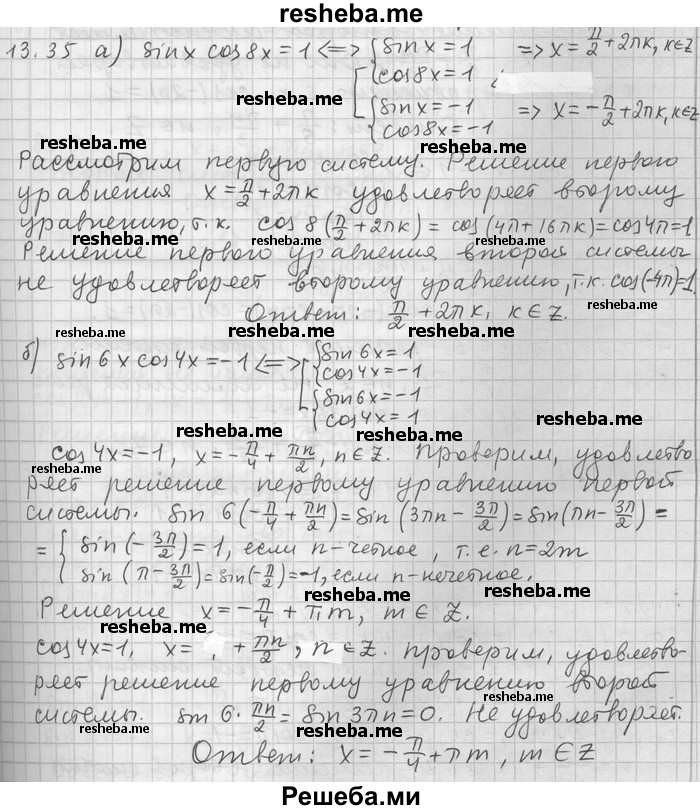 resheba.me
13.35 а) sinx cos8x=1 <=> [{sinx=1 => x=π/2+2πk, k∈Z
{cos8x=1 ;
resheba.me
{sinx=-1 => x=-π/2+2πk, k∈Z
{cos8x=-1
resheba.me resheba.me
Рассмотрим первую систему. Решение первого
уравнения x=π/2+2πk удовлетворяет второму
уравнению, т.к. cos 8(π/2+2πk)=cos(4π+16πk)=cos4π=1
resheba.me resheba.me
Решение первого уравнения второй системы
не удовлетворяет второму уравнению, т.к. cos(-4π)=1.
Ответ: π/2+2πk, k∈Z.
resheba.me resheba.me resheba.me
б) sin6x cos4x=-1 <=> [{sin6x=1
{cos4x=-1
{sin6x=-1
{cos4x=1
resheba.me resheba.me resheba.me
cos4x=-1, x=-π/4+πn/2, n∈Z. Проверим, удовлетво
resheba.me
ряет решение первому уравнению первой
системы. sin 6(-π/4+πn/2)=sin(3πn-3π/2)=sin(πn-3π/2)=
resheba.me resheba.me
={sin(-3π/2)=1, если n-четное, т.е. n=2m
{sin(π-3π/2)=sin(-π/2)=-1, если n-нечетное.
resheba.me
Решение x=-π/4+πm, m∈Z.
resheba.me
cos4x=1, x= +πn/2, n∈Z. Проверим, удовлетво-
resheba.me
ряет решение первому уравнению второй
resheba.me
системы. sin 6·πn/2=sin3πn=0. Не удовлетворяет.
resheba.me resheba.me
Ответ: x=-π/4+πm, m∈Z
Решеба.ми